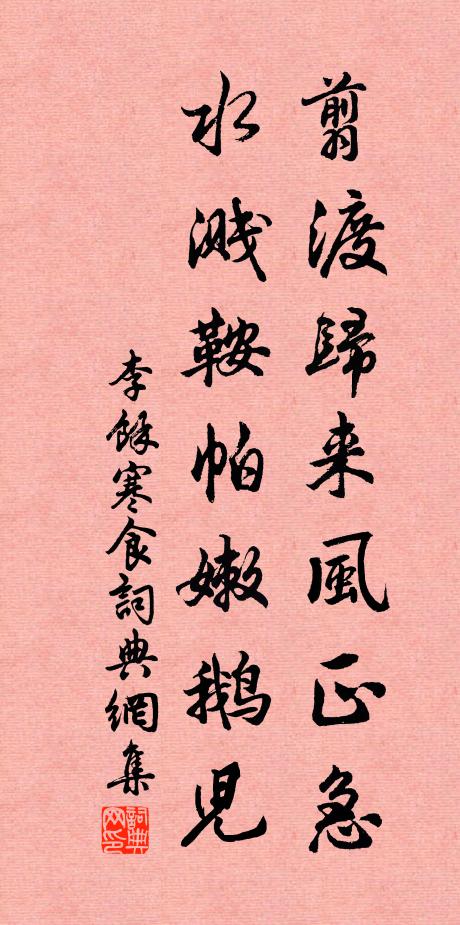 剪渡歸来風正急
水濺鞍帕嫩鵝児
李餘寒食詞典網集
詞典网印